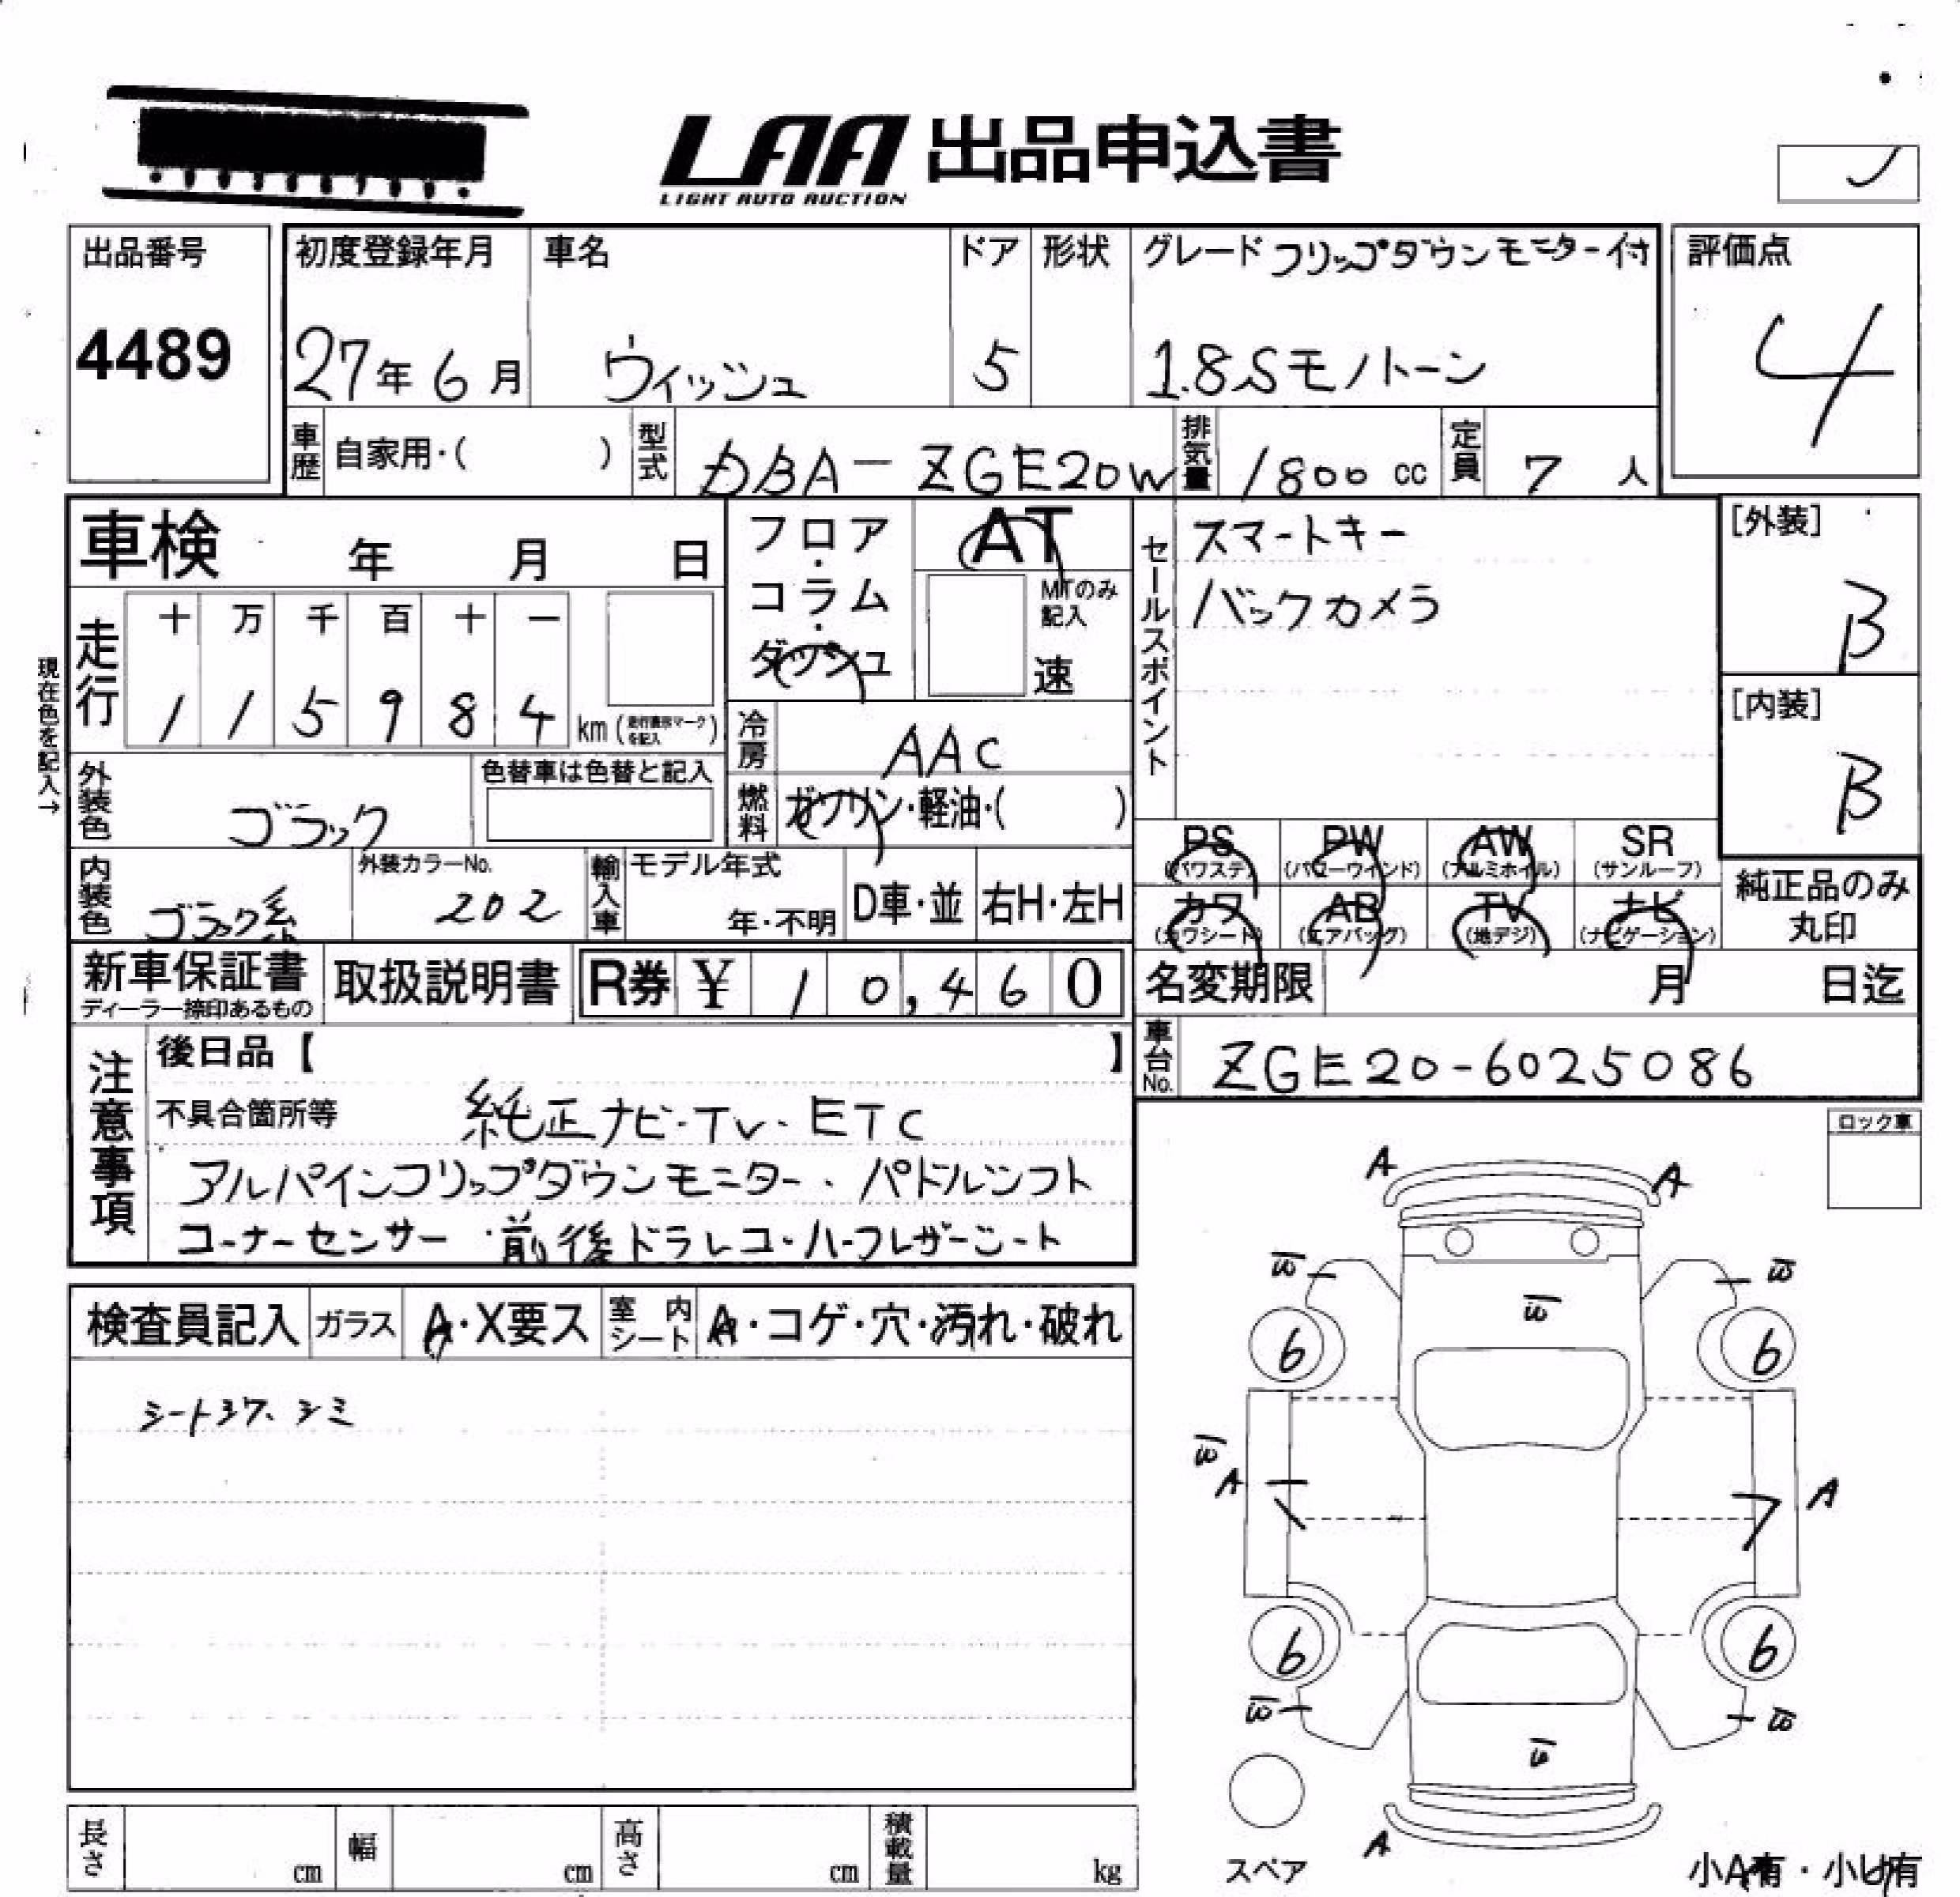 LAA 出品申込書
LIGHT AUTO AUCTION
出品番号
4489
初度登録年月
27年 6月
車名
ウィッシュ
ドア
5
形状
グレード フリップダウンモニター付
1.8Sモノトーン
評価点
4
車歴 自家用・( )
型式 DBA-ZGE20W
排気量 1800 cc
定員 7 人
車検 年 月 日
フロア・コラム・ダッシュ
AT
MTのみ記入
速
セールスポイント
スマートキー
バックカメラ
[外装]
B
[内装]
B
現在色を記入→
走行
十 万 千 百 十 一
1 1 5 9 8 4 km (走行書換マークを記入)
冷房 AAC
燃料 ガソリン・軽油・( )
外装色 ブラック
色替車は色替と記入
内装色 ブラック系
外装カラーNo.
202
輸入車
モデル年式
年・不明
D車・並
右H・左H
PS (パワステ) PW (パワーウインド) AW (アルミホイル) SR (サンルーフ)
カワ (カワシート) AB (エアバッグ) TV (地デジ) ナビ (ナビゲーション)
純正品のみ丸印
新車保証書
ディーラー捺印あるもの
取扱説明書
R券 ¥ 10,460
名変期限 月 日迄
車台No. ZGE20-6025086
注意事項
後日品【 】
不具合箇所等 純正ナビ・TV・ETC
アルパインフリップダウンモニター・パドルシフト
コーナーセンサー・前後ドラレコ・ハーフレザーシート
ロック車
検査員記入 ガラス A・X要ス 室内シート A・コゲ・穴・汚れ・破れ
シートシワ、シミ
A A
W W
W
6 6
W
A A
6 6
W W
W
A
スペア
小A有・小U有
長さ cm 幅 cm 高さ cm 積載量 kg